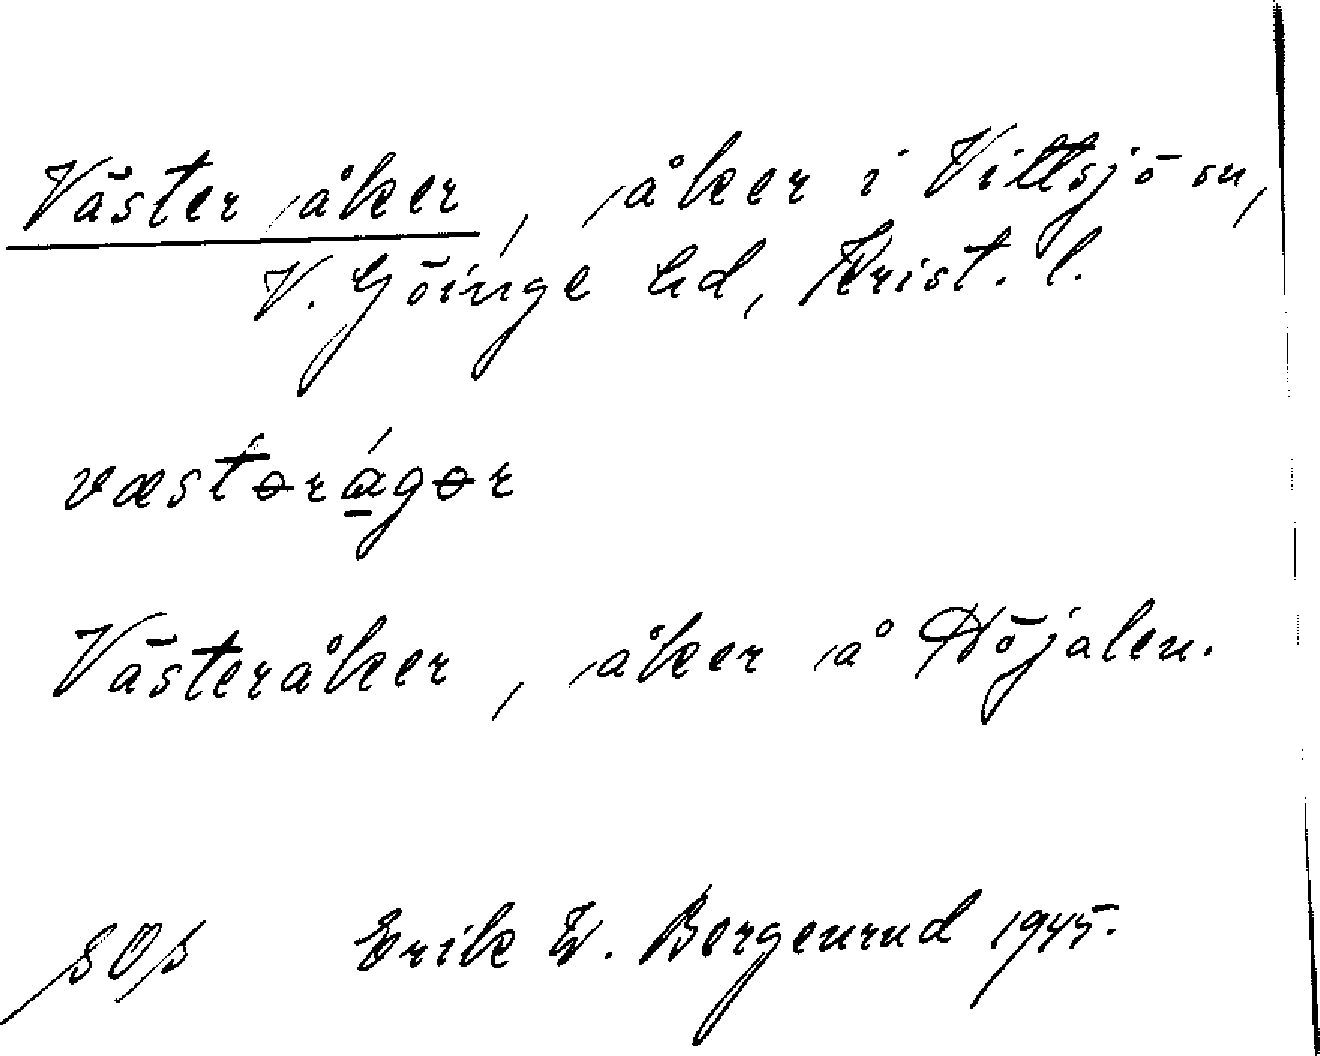 Väster åker, åker i Vittsjö sn,
V. Göinge hd, Krist. l.
væstərágər
Västeråker, åker å Höjalen.
SOS Erik W. Bergenrud 1945.